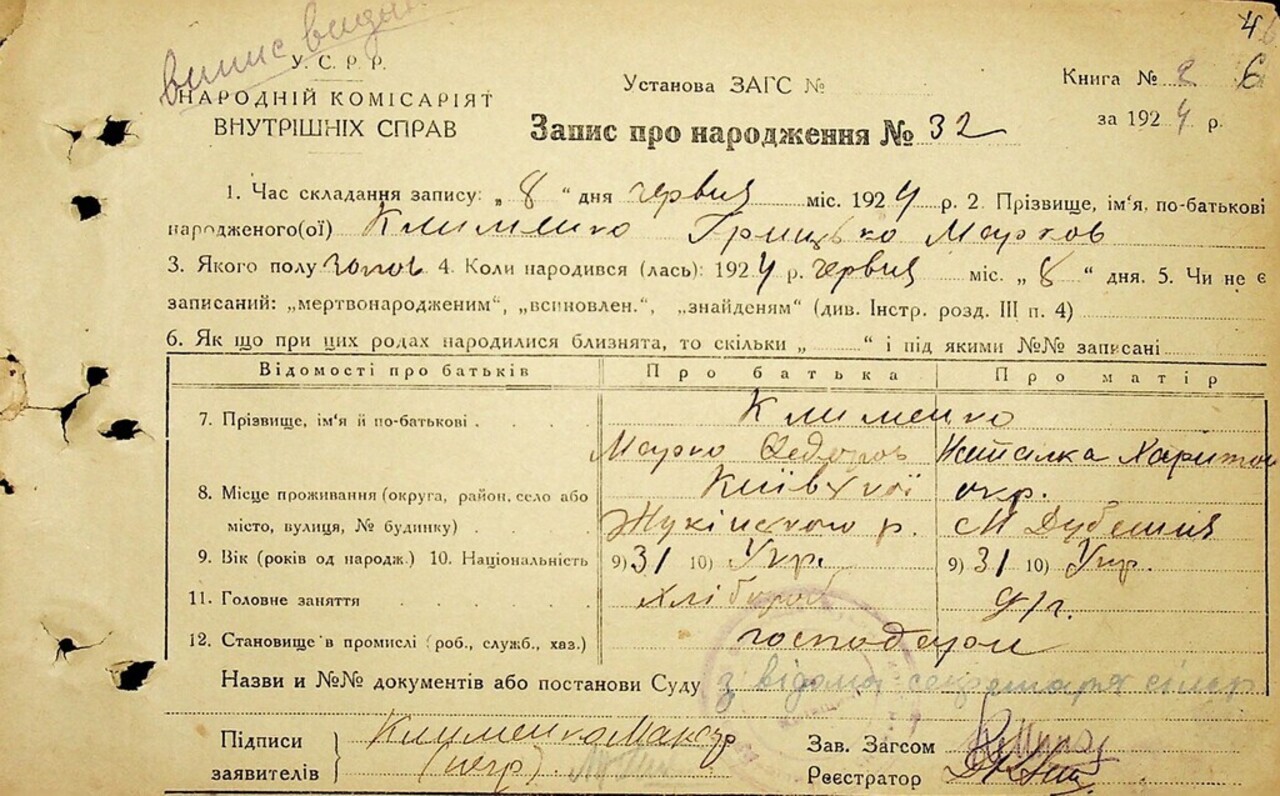 випис видан
4
У. С. Р. Р.
НАРОДНІЙ КОМІСАРІЯТ
ВНУТРІШНІХ СПРАВ
Установа ЗАГС №
Книга № 2 6
за 1924 р.
Запис про народження № 32
1. Час складання запису: „8“ дня червня міс. 1924 р. 2. Прізвище, ім'я, по-батькові
народженого(ої) Клименко Грицько Марков
3. Якого полу чолов 4. Коли народився (лась): 1924 р. червня міс. „8“ дня. 5. Чи не є
записаний: „мертвонародженим“, „всиновлен.“, „знайденям“ (див. Інстр. розд. III п. 4)
6. Як що при цих родах народилися близнята, то скільки „ “ і під якими №№ записані
Відомості про батьків Про батька Про матір
7. Прізвище, ім'я й по-батькові Клименко
Марко Федоров Наталка Харитон
8. Місце проживання (округа, район, село або Київської окр.
місто, вулиця, № будинку) р. М Дубешня
9. Вік (років од народж.) 10. Національність 9) 31 10) Укр. 9) 31 10) Укр.
11. Головне заняття Хлібороб д/г.
12. Становище в промислі (роб., служб., хаз.) господарі
Назви и №№ документів або постанови Суду з відома секретаря сільр
Підписи Клименко
заявителів
Зав. Загсом
Реєстратор